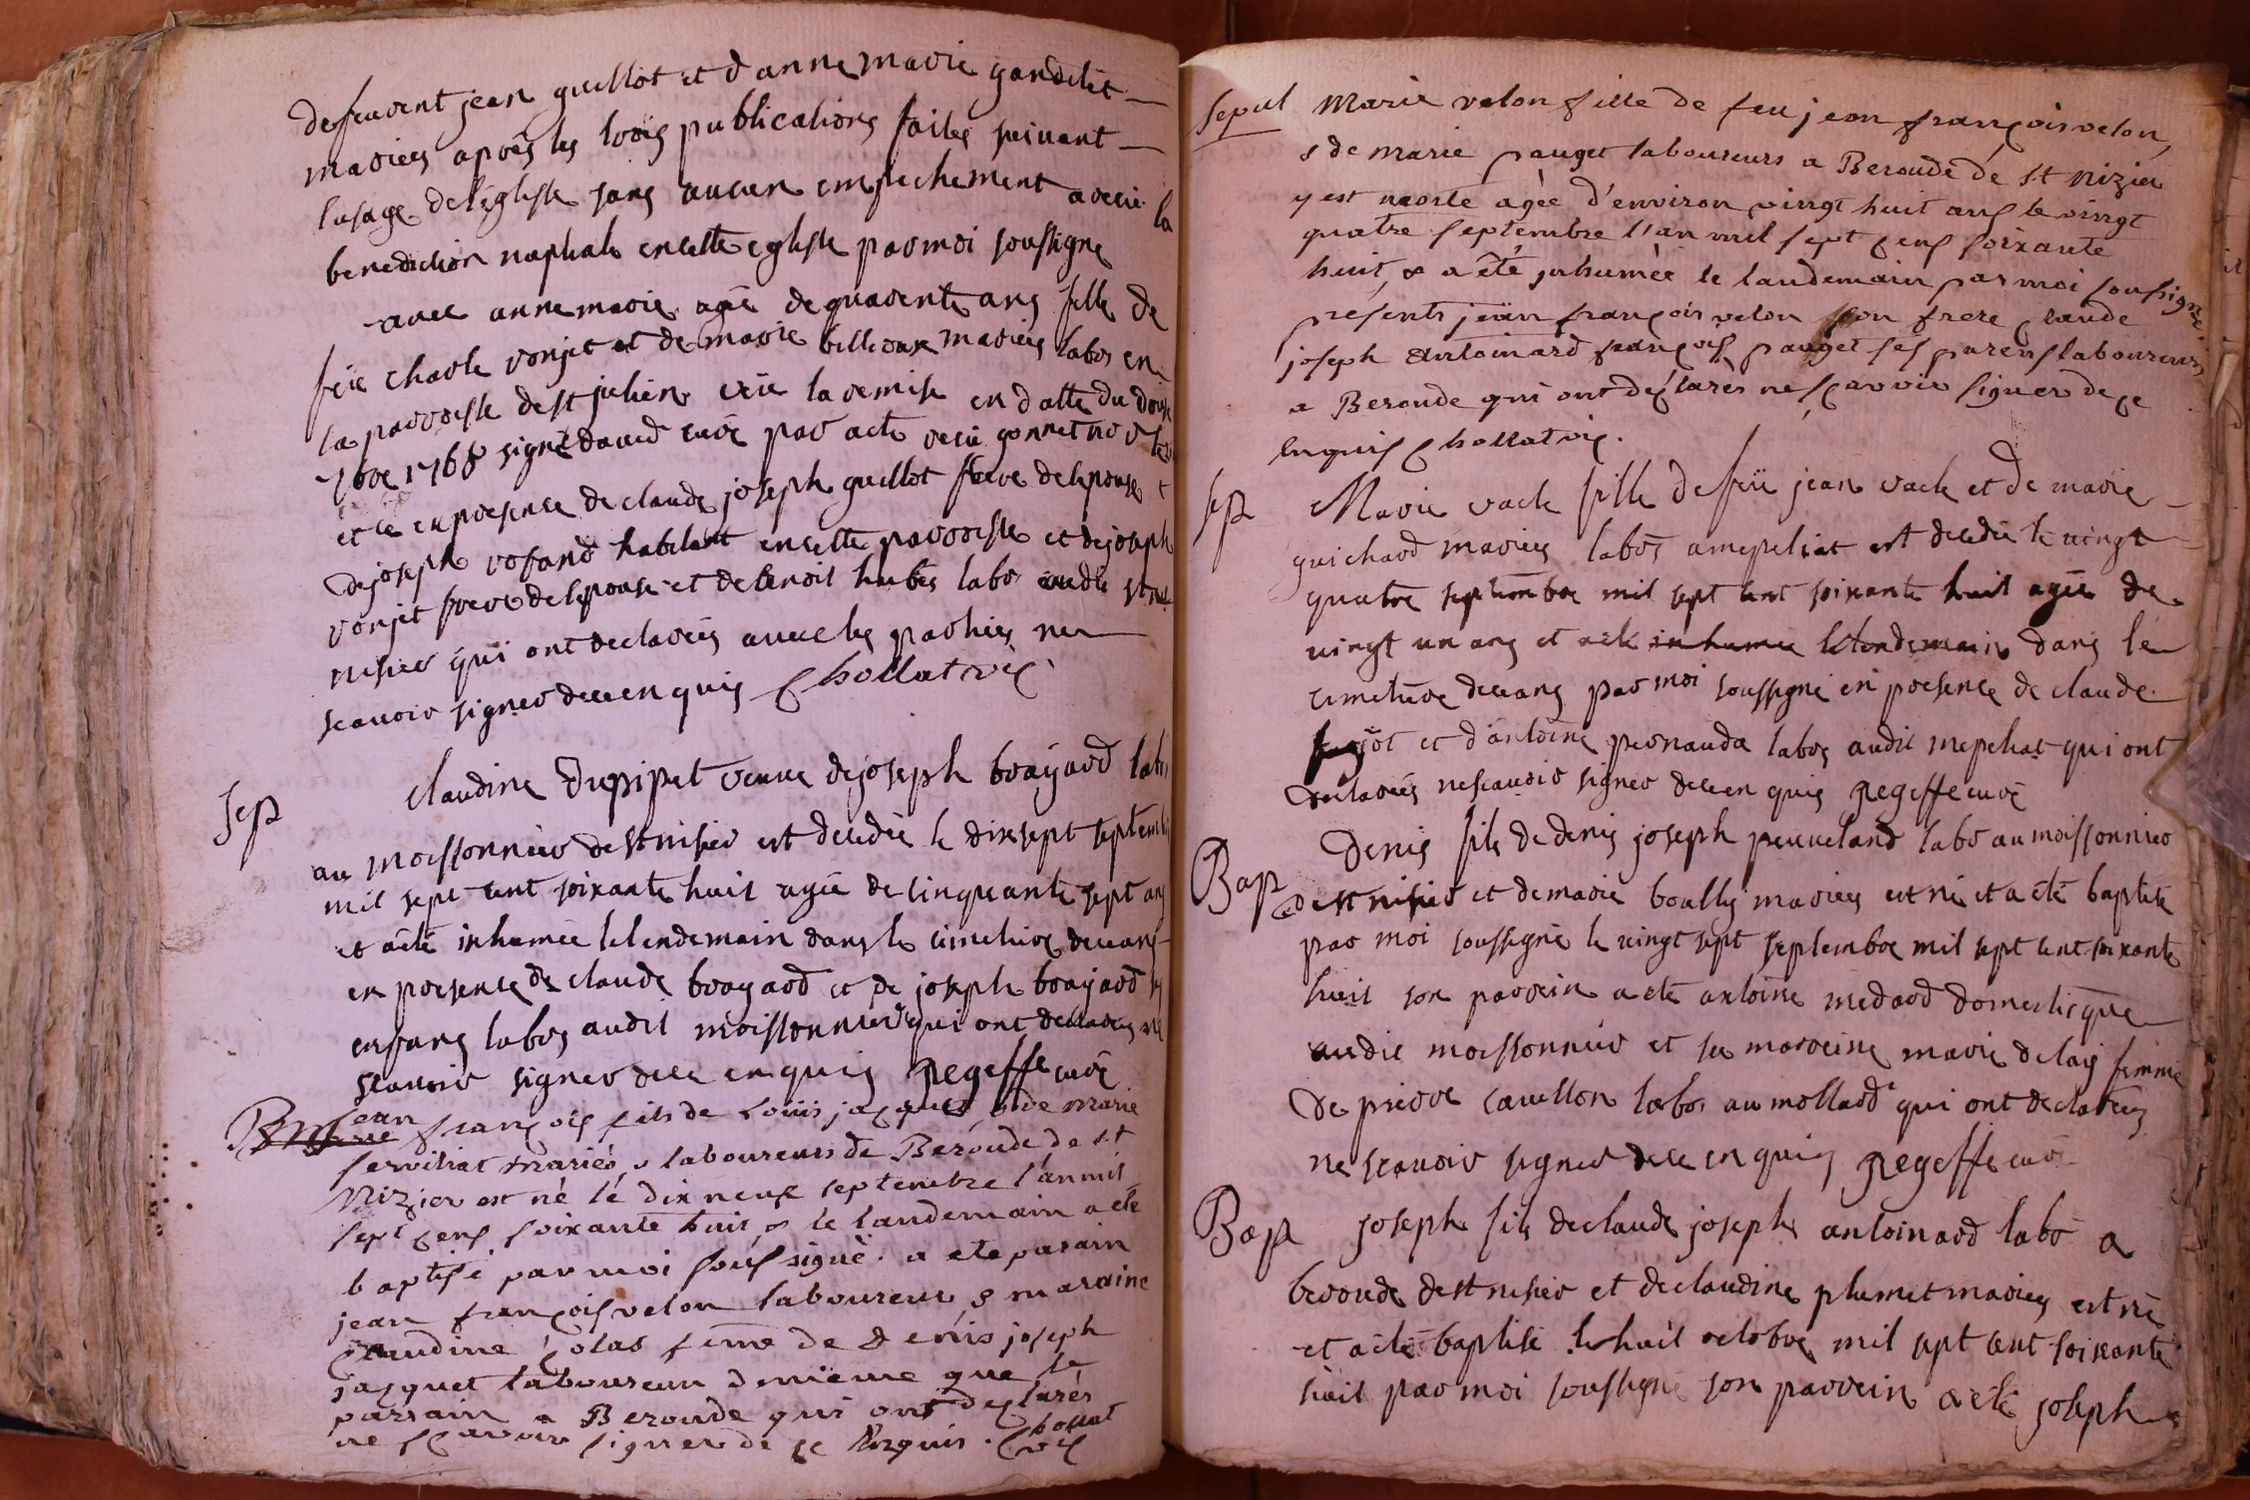 defeuent jean guillot et d anne marie gandelet
mariees aprés les trois publications faites suivant
lusage delegliste sans aucun empechement a receu la
benediction nuptiale encette egliste par moi soussigne
avec anne marie agée de quarente ans fille de
feüe charle vonjet et de marie billioux mariees labo en
la parroisse de st julien veü la remise en datte du douse
7bre 1768 signé david curé par acte receu gonnet nore
et ce en presence de claude joseph guillot frere delepouse
de joseph vofand habitant encette parroisse et dejoseph
vonjet frere delepouse et debenoit hubés labo audit st ni
nisier qui ont declarées avec les parties ne
scavoir signer deceenquis Chollat vic
Sep
claudine drepipet veuve dejoseph brayard labo
au moissonnier de st nisier est decedée le dixsept septemb
mil sept cent soixante huit agée de cinquante sept ans
et aété inhumée lelendemain dans le cimetiere deceans
en presence de claude brayard et de joseph brayard
enfans labos audit moissonnier qui ont declarees ne
scavoir signer dece enquis pegeffe curé
B jean françois fils de Louis jacquet & de Marie
servilliat mariés, laboureurs de Beroude de st
Nizier est né lé dix neuf septembre l'an mil
sept cens soixante huit, & le landemain a eté
baptisé par moi soussigné. a ete parain
jean françois velon laboureur & maraine
claudine colas feme de denis joseph
jacquet laboureur demême que le
parrain a Beroude qui ont declarés
ne scavoir signer de ce Enquis. Chollat
vic
Sepul Marie velon fille de feu jean françois velon
& de marie pauget laboureurs a Beroude de st Nizier
y est morte agée d'environ vingt huit ans le vingt
quatre septembre l'an mil sept cens soixante
huit, & a été inhumée le landemain par moi soussigné
présents jean françois velon son frere claude
joseph Antoinard françois pauget ses parens laboureurs
a Beroude qui ont déclarés ne scavoir signer de ce
enquis Chollat vic.
Sep
Marie vack fille defeü jean vack et de marie
guichard mariees labos amepeliat est decedée le vingt
quatre septembre mil sept cent soixante huit agée de
vingt un ans et aété inhumée lelendemain dans le
cimetiere deceans par moi soussigné en presence de claude
jot et d'antoine pernauda labos audit mepeliat qui ont
declarées nescavoir signer deceenquis pegeffe curé
Bap
denis fils de denis joseph peuveland labo au moissonnier
de st nisier et demarie boully mariees est né et a été baptise
par moi soussigné le vingt sept septembre mil sept cent soixante
huit son parrein a eté antoine medard domestique
audit moissonnier et sa marreine marie delay femme
de pierre cauillon labo au mollard qui ont declarees
ne scavoir signer dece enquis pegeffe curé
Bap
joseph fils declaude joseph antoinard labo a
beroude de st nisier et declaudine plumet mariees est né
et aété baptisé le huit octobre mil sept cent soixante
huit par moi soussigné son parrein aété joseph